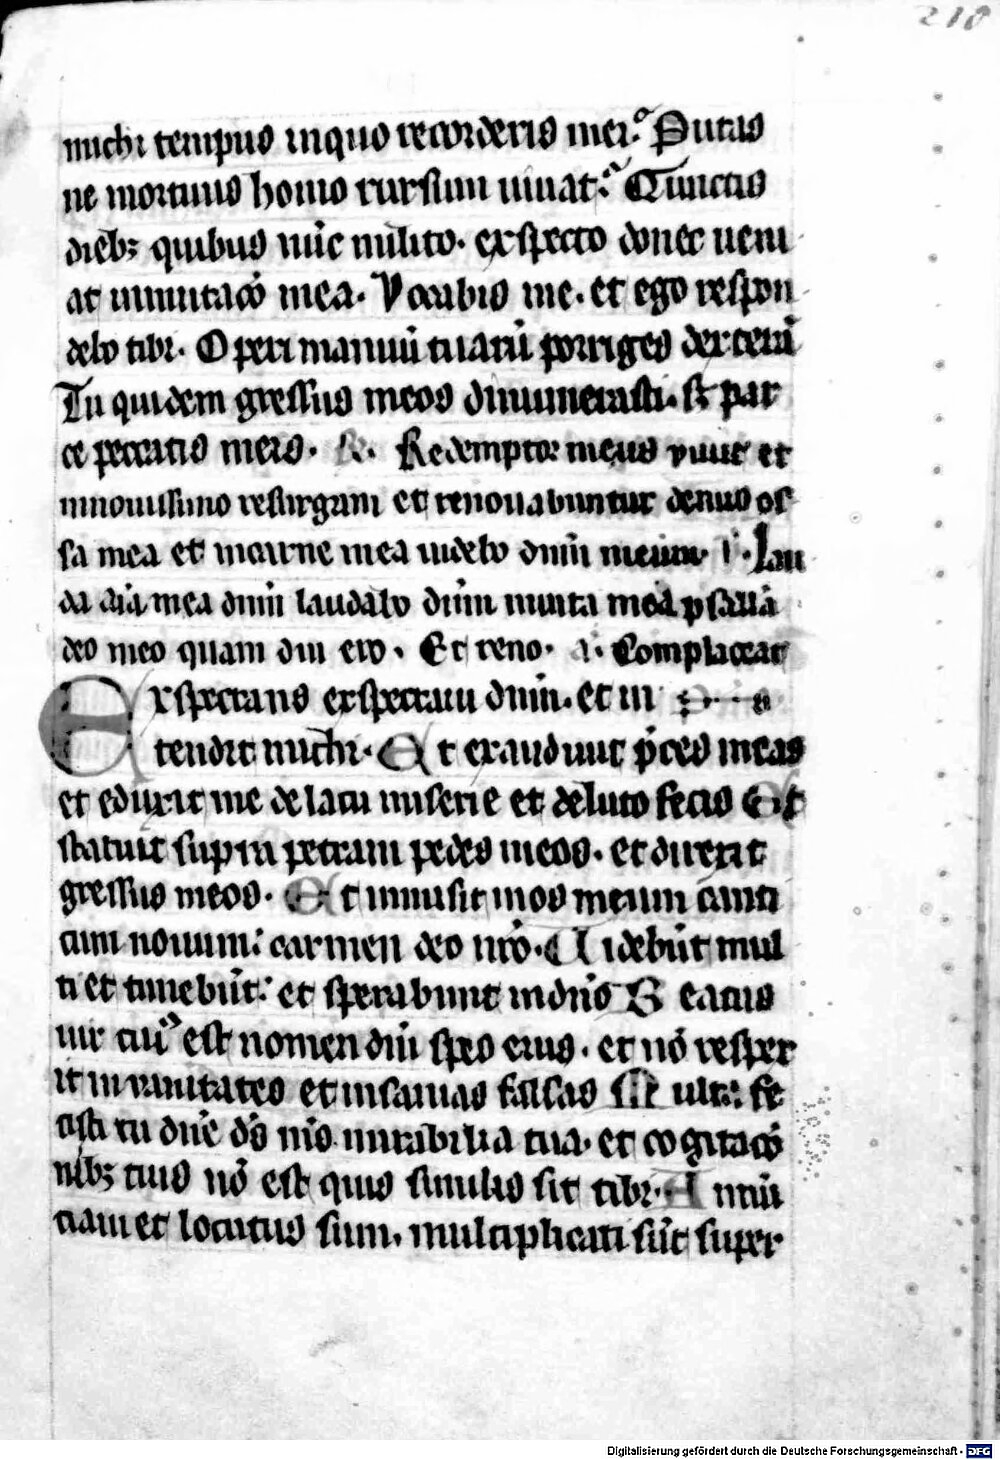 210
michi tempus inquo recorderis mei? Putas
ne mortuus homo rursum uiuat? Cunctis
dieb; quibus nūc milito. exspecto donec ueni
at inmutacō mea. Vocabis me. et ego respon
debo tibi. Operi manuū tuarū porriges dexterā
Tu quidem gressus meos dinumerasti. sꝫ par
ce peccatis meis. R. Redemptor meus viuit et
innouissimo resurgam et renouabuntur denuo os
sa mea et incarne mea uidebo dnm̄ meum. V. Lau
da aīa mea dnm̄ laudabo dūm inuita mea psallā
deo meo quam diu ero. Et reno. a. Complaceat
Exspectans exspectaui dnm̄. et in
tendit michi. Et exaudiuit p̄ces meas
et eduxit me de lacu miserie et deluto fecis Et
statuit supra petram pedes meos. et direxit
gressus meos. Et inmisit inos meum canti
cum nouum: carmen deo nr̄o. Uidebūt mul
ti et timebūt: et sperabunt indn̄o Beatus
uir cui' est nomen dn̄i spes eius. et nō respex
it in vanitates et insanias falsas Multa fe
cisti tu dn̄e ds̄ ms̄ mirabilia tua. et cogitacō
nib; tuis nō est quis similis sit tibi. Annū
ciaui et locutus sum. multiplicati sūt super
Digitalisierung gefördert durch die Deutsche Forschungsgemeinschaft - DFG